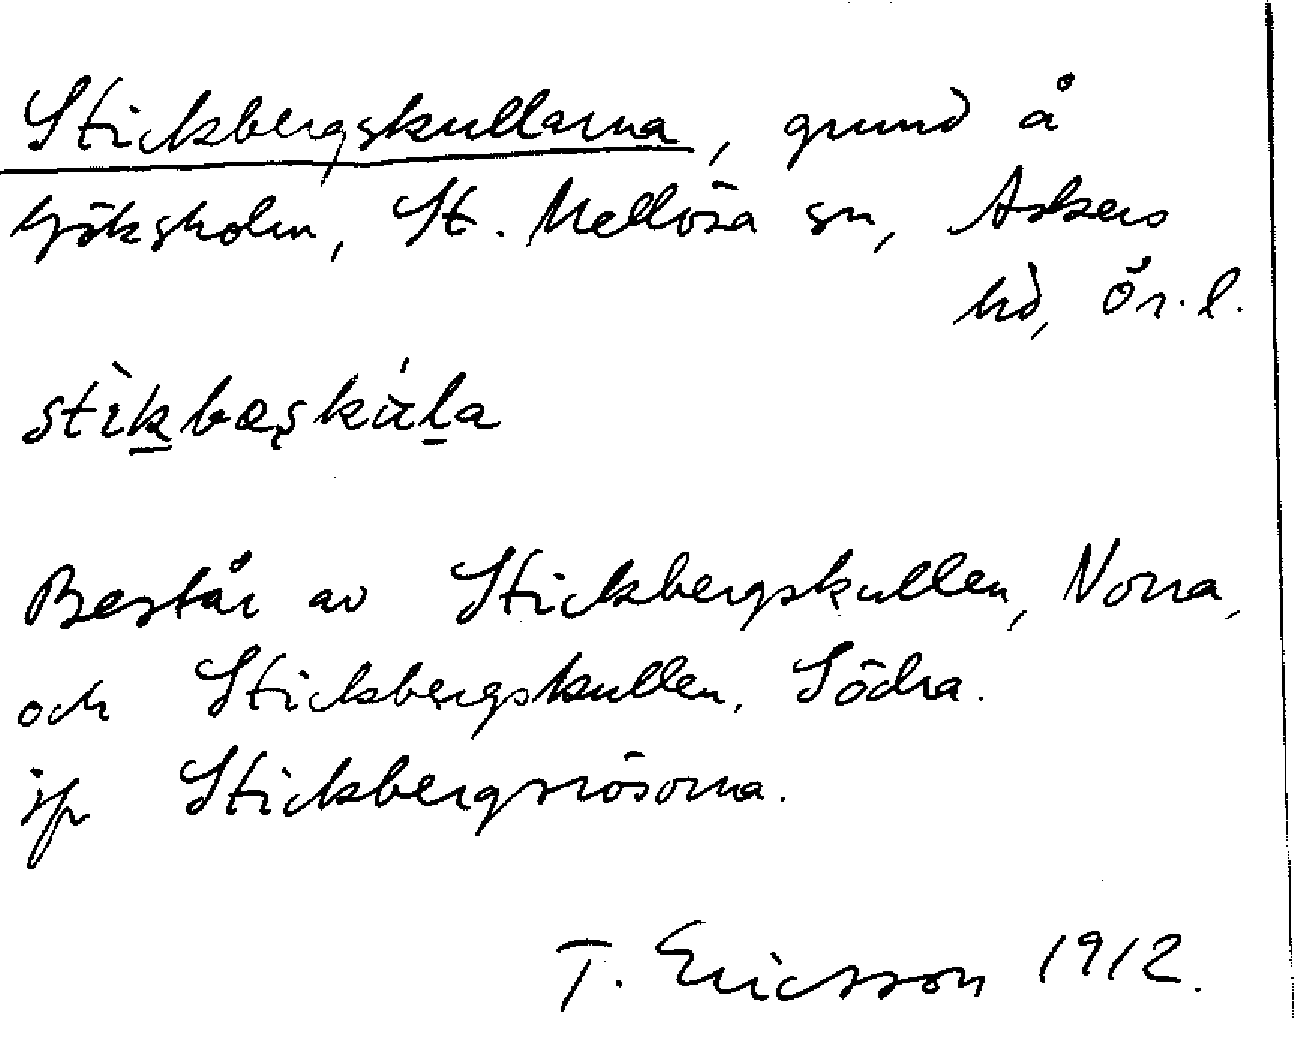 Stickbergskullarna, grund å
Göksholm, St. Mellösa sn, Askers
hd, Ör. l.
stìkbæşkùla
Består av Stickbergskullen, Norra,
och Stickbergskullen, Södra.
jfr Stickbergsrösorna.
T. Ericsson 1912.